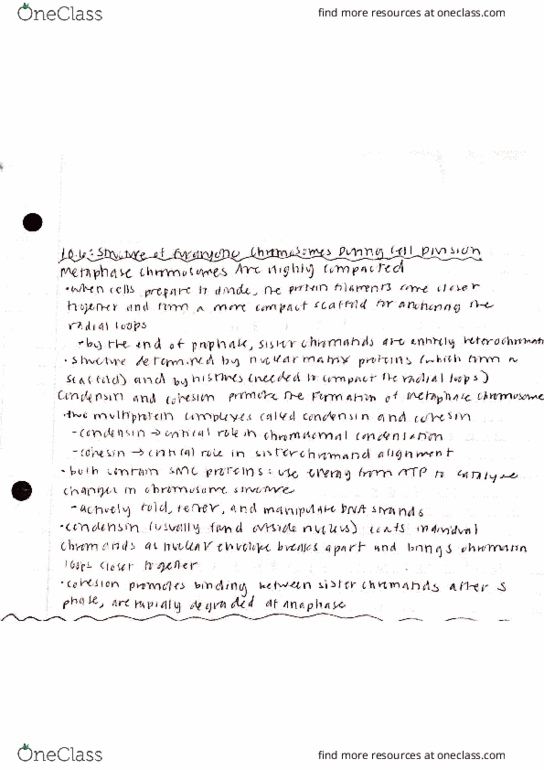 OneClass
find more resources at oneclass.com
10.6: Structure of Eukaryotic Chromosomes During Cell Division
Metaphase Chromosomes Are Highly Compacted
• when cells prepare to divide, the protein filaments come closer
together and form a more compact scaffold for anchoring the
radial loops
→ by the end of prophase, sister chromatids are entirely heterochromati
• structure determined by nuclear matrix proteins (which form a
scaffold) and by histones (needed to compact the radial loops)
Condensin and cohesion promote the Formation of metaphase chromosome
• two multiprotein complexes called condensin and cohesin
- condensin → critical role in chromosomal condensation
- cohesin → critical role in sister chromatid alignment
• both contain SMC proteins: use energy from ATP to catalyze
changes in chromosome structure
→ actively fold, tether, and manipulate DNA strands
• condensin (usually found outside nucleus) coats individual
chromatids as nuclear envelope breaks apart and brings chromatin
loops closer together
• cohesion promotes binding between sister chromatids after S
phase, are rapidly degraded at anaphase
OneClass
find more resources at oneclass.com